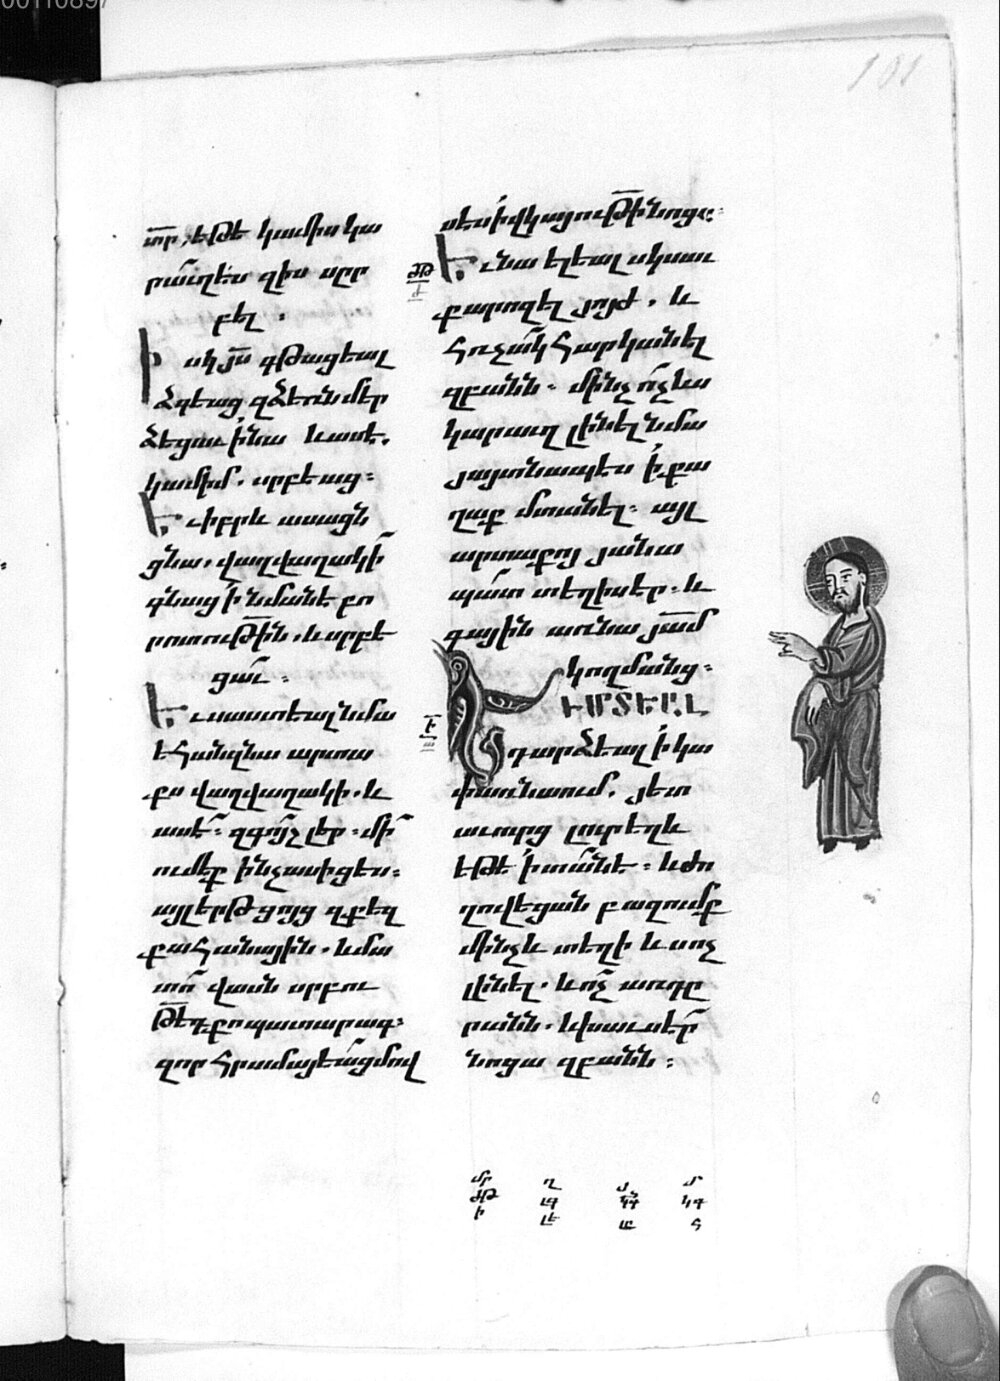 00110897
181
տր, եթե կամիս կա
րաւղես զիս սրբ
բել .
Իսկ յս գթացեալ
ձգեաց զձեռն մեր
ձեցաւ ի նա և ասե.
կամիմ . սրբեաց :
Եւ իբրև ասացն
ցնա, վաղվաղակի
գնաց ի նմանե բո
րոտութին, և սրբե
ցաւ :
Եւ սաստեալ նմա
եհան զնա արտա
քս վաղվաղակի . և
ասե : զգոյշ լեր : մի
ումեք ինչ ասիցես :
այլ երթ ցոյց զքեզ
քահանային . և մա
տո վասն սրբու
թե քո պատարագ :
զոր հրամայեաց մով
սես ի վկայութի նոցա :
ժթ
Եւ նա ելեալ սկսաւ
քարոզել յոյժ . և
հռչակ հարկանել
զբանն : մինչ ոչ ևս
կարաւղ լինել նմա
յայտնապես ի քա
ղաք մտանել : այլ
արտաքոյ յանա
պատ տեղիս եր . և
գային առ նա յամ
կողմանց :
ի
ԵՒ ՄՏԵԱԼ
դարձեալ ի կա
փառնաում . յետ
աւուրց լուր եղև
եթե ի տան է : և ժո
ղովեցան բազումք
մինչև տեղի և ոչ
լինել . և ոչ առ դը
րանն . և խաւսեր
նոցա զբանն :
մր ղ յ մ
ժթ լգ կգ կգ
ի լե հ